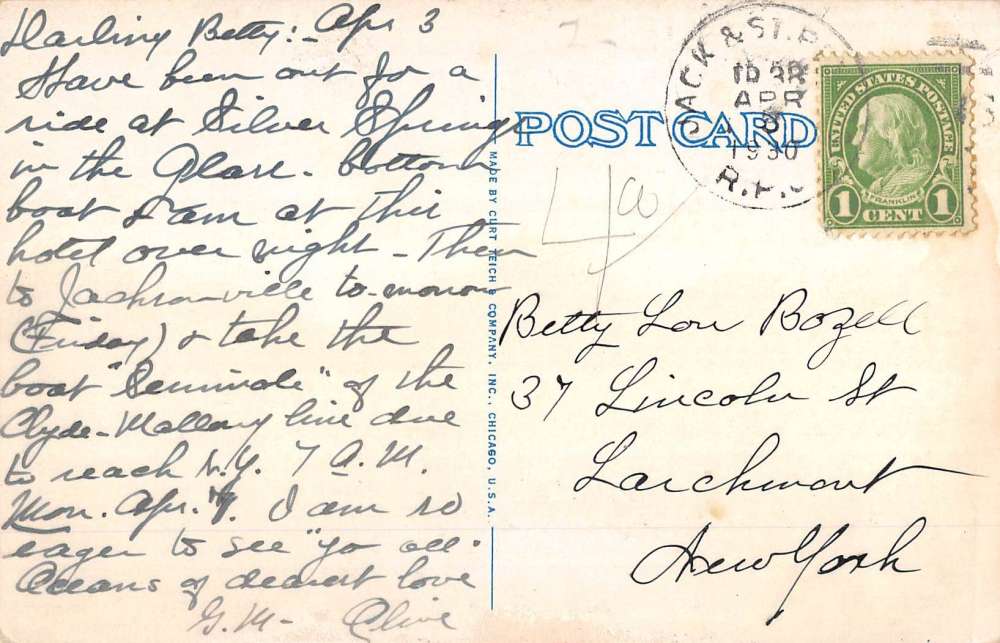 Darling Betty:- Apr 3
Have been out for a
ride at Silver Springs
in the Glass-bottom
boat & am at this
hotel over night - Then
to Jacksonville to-morrow
(Friday) & take the
boat "Seminole" of the
Clyde-Mallory line due
to reach N.Y. 7 A.M.
Mon. Apr. 7. I am so
eager to see "yo all"
Oceans of dearest love
G.M- Clive
MADE BY CURT TEICH & COMPANY, INC., CHICAGO, U.S.A.
POST CARD
JACK & ST. P
APR
1930
R.P.O
UNITED STATES POSTAGE
FRANKLIN
1 CENT 1
Betty Lou Bozell
37 Lincoln St
Larchmont
New York